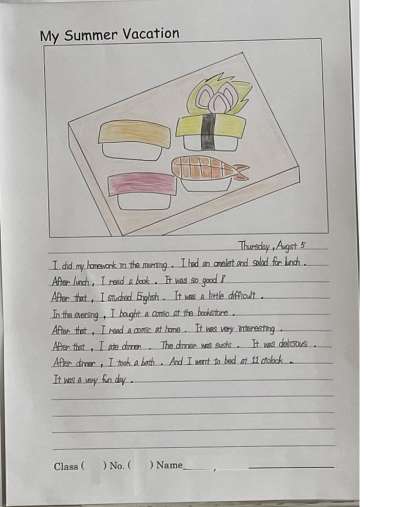 My Summer Vacation
Thursday, August 5
I did my homework in the morning. I had an omelet and salad for lunch.
After lunch, I read a book. It was so good!!
After that, I studied English. It was a little difficult.
In the evening, I bought a comic at the bookstore.
After that, I read a comic at home. It was very interesting.
After that, I ate dinner. The dinner was sushi. It was delicious.
After dinner, I took a bath. And I went to bed at 11 o'clock.
It was a very fun day.
Class (    ) No. (    ) Name_____ , __________